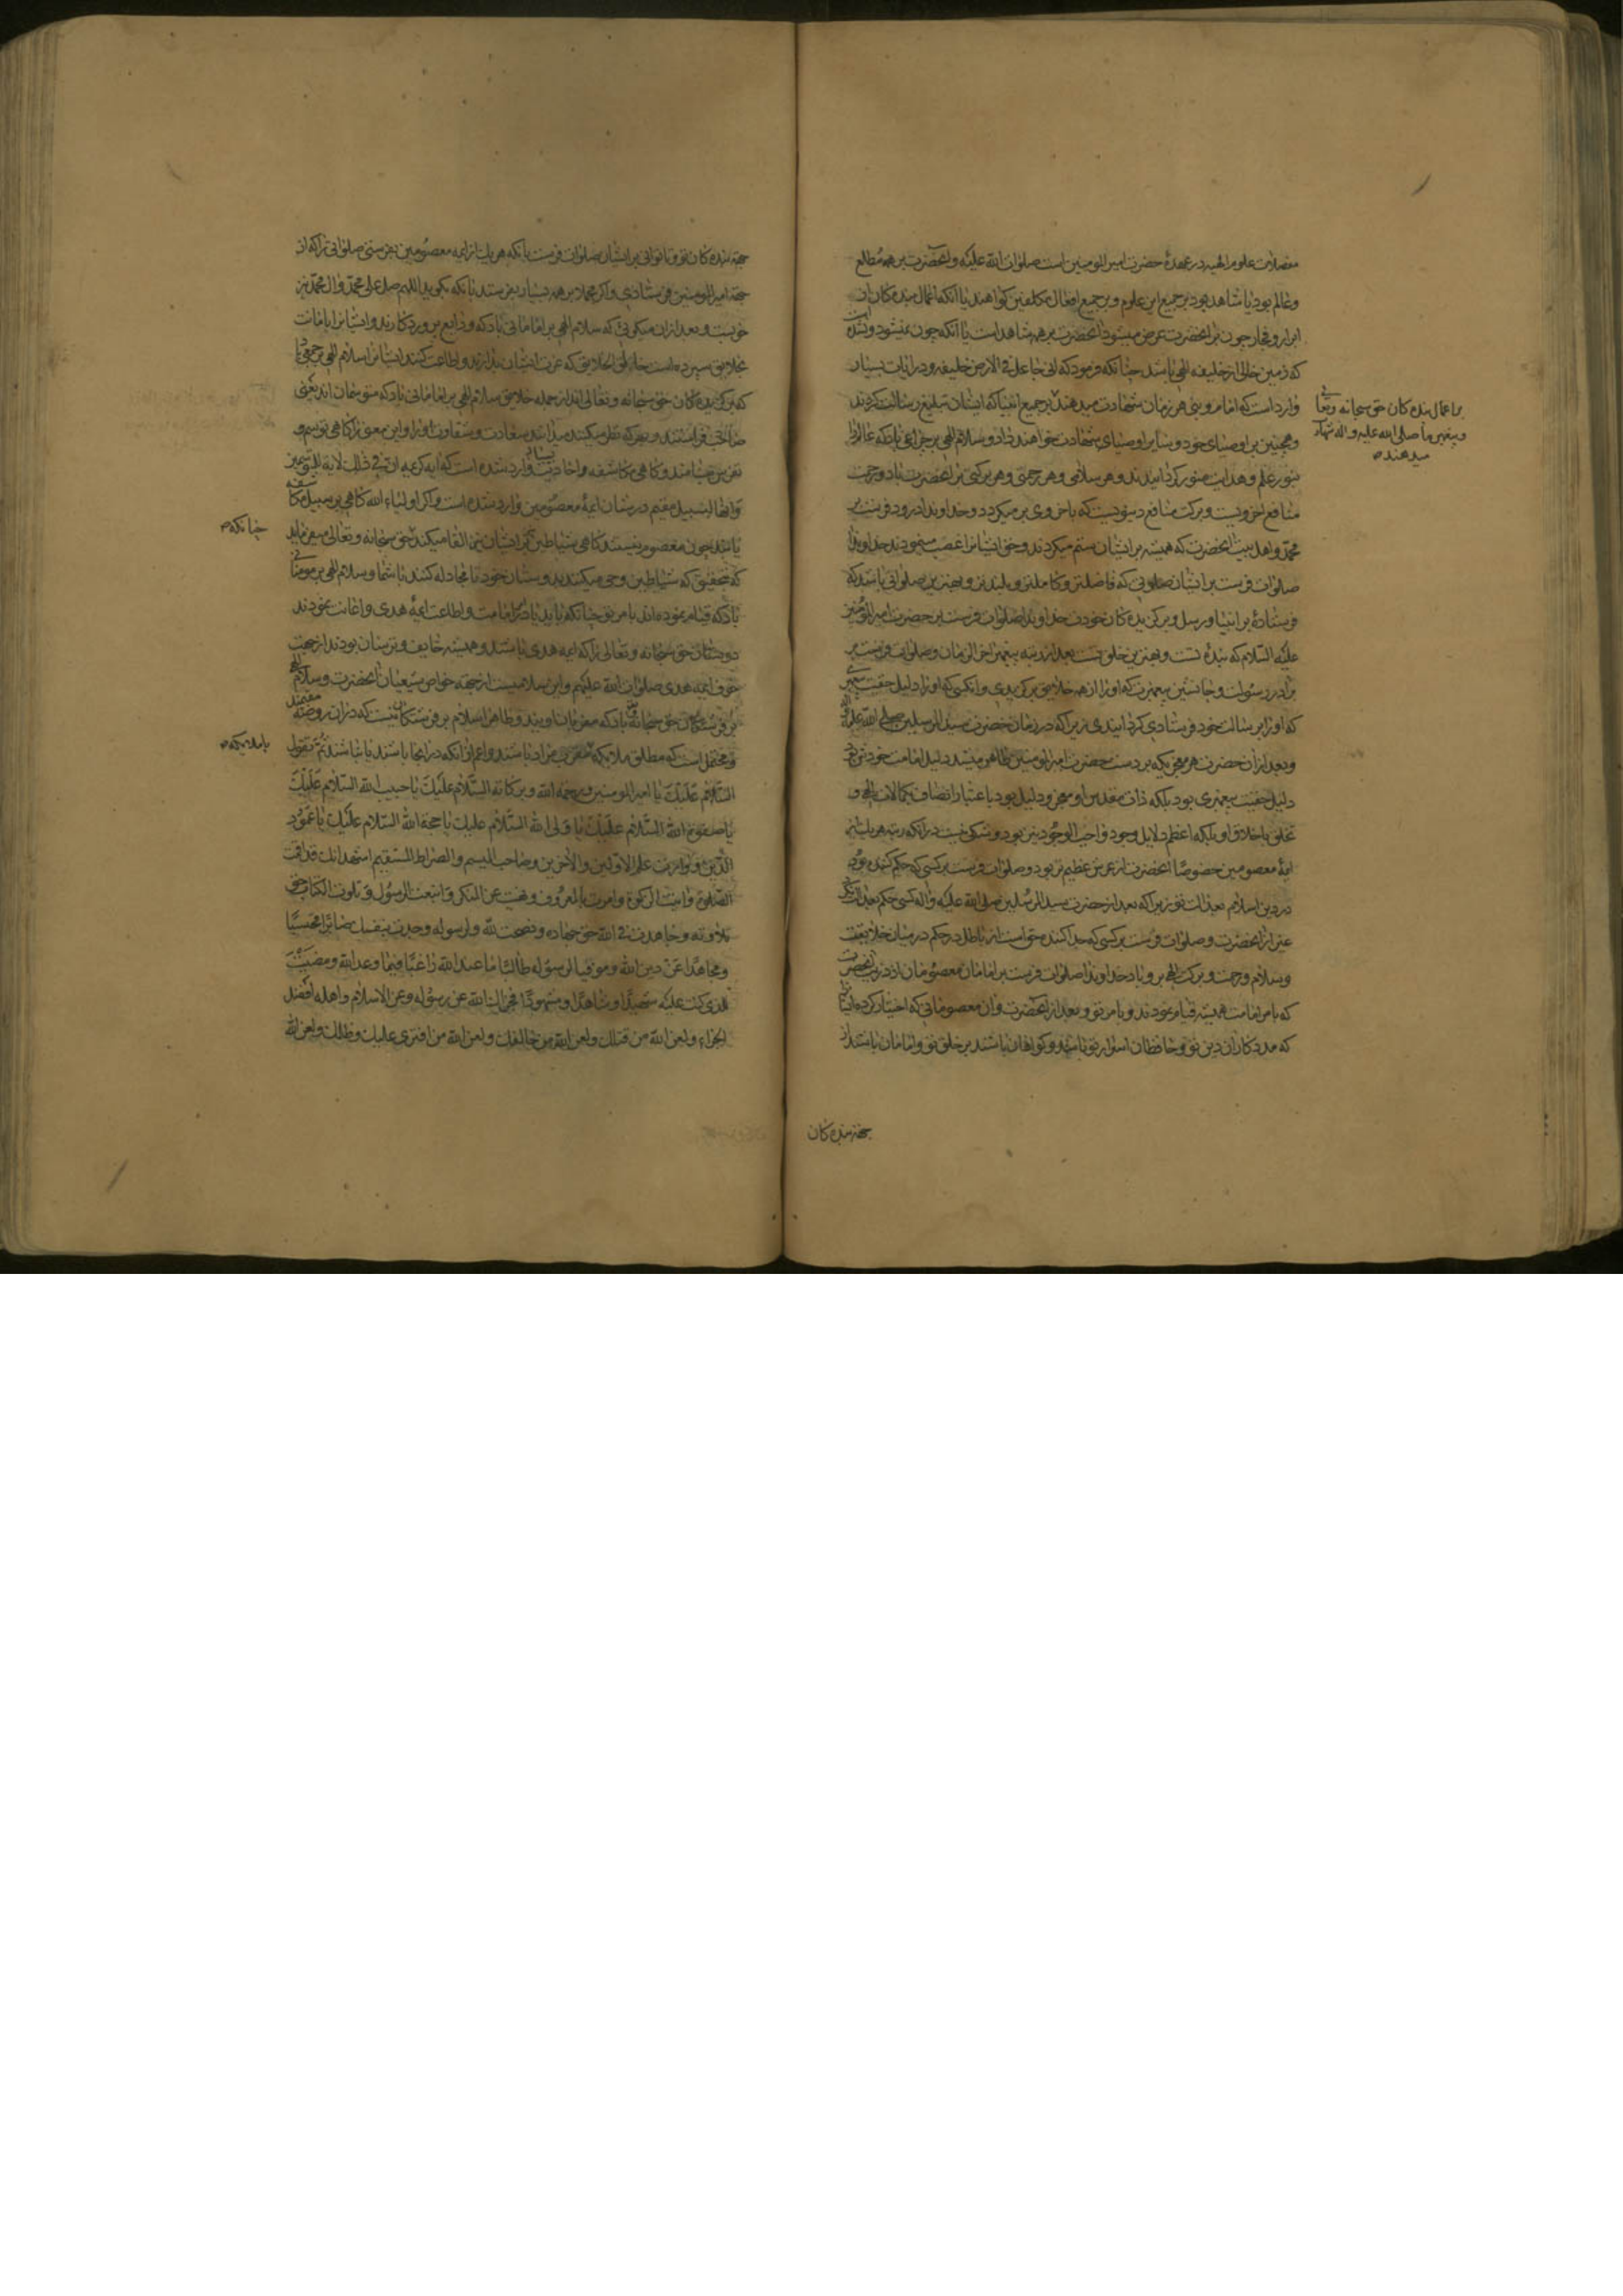 مفصلات علوم الهیه در عهدهٔ حضرت امیر المومنین است صلوات الله علیه و آنحضرت بر همه مطلع
و عالم بود یا شاهد بود بر جمیع این علوم و بر جمیع افعال مکلفین کواهند یا آنکه اعمال بنده کان از
ابرار و فجار چون بر آنحضرت عرض میشود آنحضرت بر همه شاهد است یا آنکه چون
که زمین خالی از خلیفه الهی باشد چنانکه فرمود که انی جاعل فی الارض خلیفه و در آیات بسیار
وارد است که امام و نبی هر زمان شهادت میدهند بر جمیع انبیا که ایشان تبلیغ رسالت کردند
بر اعمال بنده کان حق سبحانه و تعالی
و پیغمبر ما صلی الله علیه و اله شهادت
میدهند
و همچنین بر اوصیای خود و سایر اوصیای شهادت خواهند داد و سلام الهی بر چراغی باد که عالم را
بنور علم و هدایت منور کردانیدند و هر سلامی و هر رحمتی و هر برکتی بر آنحضرت باد و رحمت
منافع اخرویست و برکت منافع دنیویست که باخروی بر میکردد و خداوندا درود فرست بر
محمد و اهل بیت آنحضرت که همیشه بر ایشان ستم میکردند و حق ایشانرا غصب مینمودند خداوندا
صلوات فرست بر ایشان صلواتی که فاضلتر و کاملتر و بلندتر و بهترین صلواتی باشد که
فرستادهٔ بر انبیا و رسل و برکزیده کان خودت خداوندا صلوات فرست بر حضرت امیر المؤمنین
علیه السلام که بندهٔ تست و بهترین خلق تست بعد از رتبه پیغمبر اخر الزمان و صلوات فرست بر
برادر رسولت و جانشین پیغمبرت که او را از همه خلایق برکزیدی و انکسی که او را دلیل حقیت پیغمبر
که او را برسالت خود فرستادی کردانیدی زیرا که در زمان حضرت سید المرسلین صلی الله علیه و اله
و بعد از آن حضرت هر معجزیکه بر دست حضرت امیر المومنین ظاهر میشد دلیل امامت خودش بود
دلیل حقیت پیغمبری بود بلکه ذات مقدس او معجز و دلیل بود باعتبار اتصاف بکمالات الهی و
تخلق باخلاق او بلکه اعظم دلایل وجود واجب الوجود نیز بود و شکی نیست در آنکه رتبه هر یک از
ایمهٔ معصومین خصوصا آنحضرت از عرش عظیم تر بود و صلوات فرست بر کسی که حکم کننده بود
در دین اسلام بعدالت تو زیرا که بعد از حضرت سید المرسلین صلی الله علیه و اله کسی حکم بعدالت نکرد
غیر از آنحضرت و صلوات فرست بر کسی که جدا کننده حق است از باطل در حکم در میان خلایقت
و سلام و رحمت و برکت الهی بر و باد خداوندا صلوات فرست بر امامان معصومان از ذریت آنحضرت
که بامر امامت همیشه قیام نمودند و بامر تو و بعد از آنحضرت و آن معصومانی که اختیار کردهٔ ایشانرا
که مددکاران دین تو و حافظان اسرار تو باشند و کواهان باشند بر خلق تو و امامان باشند از
جهته بنده کان
جهته بنده کان تو و تا توانی بر ایشان صلوات فرست بآنکه هر یک از ایمه معصومین بفرستی صلواتی را که از
جهة امیر المومنین فرستادی و اکر مجملا بر همه بسیار بفرستد بآنکه بکوید اللهم صل علی محمد و ال محمد نیز
خوبست و بعد از آن میکوئی که سلام الهی بر امامانی باد که ودایع پروردکارند و ایشانرا بامانت
بخلایق سپرده است خالق الخلایق که عزت ایشان بدارند و اطاعت کنند ایشانرا سلام الهی بر جمعی باد
که برکزیده کان حق سبحانه و تعالی اند از جمله خلایق سلام الهی بر امامانی باد که متوسمان اند یعنی
صاحب فراستند و بهر که نظر میکنند میدانند سعادت و شقاوت او را و این معنی را کاهی توسم و
تفرس مینامند و کاهی مکاشفه و احادیث بسیار وارد شده است که آیه کریمه ان فی ذلک لایة للمتوسمین
و انها لبسبیل مقیم در شان ایمهٔ معصومین وارد شده است و اکر اولیاء الله کاهی بر سبیل مکاشفه
یا بند چون معصوم نیستند کاهی شیاطین نیز ایشان نیز القا میکنند چنانکه حق سبحانه و تعالی میفرماید
که بتحقیق که شیاطین وحی میکنند بدوستان خود تا مجادله کنند با شما و سلام الهی بر مومنانی
باد که قیام نموده اند بامر تو چنانکه باید یا در امامت و اطاعت ایمهٔ هدی و اعانت نمودند
دوستان حق سبحانه و تعالی را که ایمه هدی باشند و همیشه خایف و ترسان بودند از جهت
خوف ایمه هدی صلوات الله علیهم و این سلامیست از جهة خواص شیعیان آنحضرت و سلام الهی
بر فرشتکان حق سبحانه باد که مقربان اویند و ظاهرا سلام بر فرشتکان نیست که در آن روضه مقیمند
و محتمل است که مطلق ملایکه مقرب مراد باشند اعم از انکه در اینجا باشند یا نباشند ثم تقول
السلام علیک یا امیر المومنین و رحمة الله و برکاته السلام علیک یا حبیب الله السلام علیک
یا صفوة الله السلام علیک یا ولی الله السلام علیک یا حجة الله السلام علیک یا عمود
الدین و وارث علم الاولین و الاخرین و صاحب المیسم و الصراط المستقیم اشهد انک قد اقمت
الصلوة و اتیت الزکوة و امرت بالمعروف و نهیت عن المنکر و اتبعت الرسول و تلوت الکتاب حق
تلاوته و جاهدت فی الله حق جهاده و نصحت لله و لرسوله و جدت بنفسک صابرا محتسبا
و مجاهدا عن دین الله و موقیا لرسوله طالبا ما عند الله راغبا فیما وعد الله و مضیت
للذی کنت علیه شهیدا و شاهدا و مشهودا فجزاک الله عن رسوله و عن الاسلام و اهله افضل
الجزاء و لعن الله من قتلک و لعن الله من خالفک و لعن الله من افتری علیک و ظلمک و لعن الله
چنانکه
با ملایکه